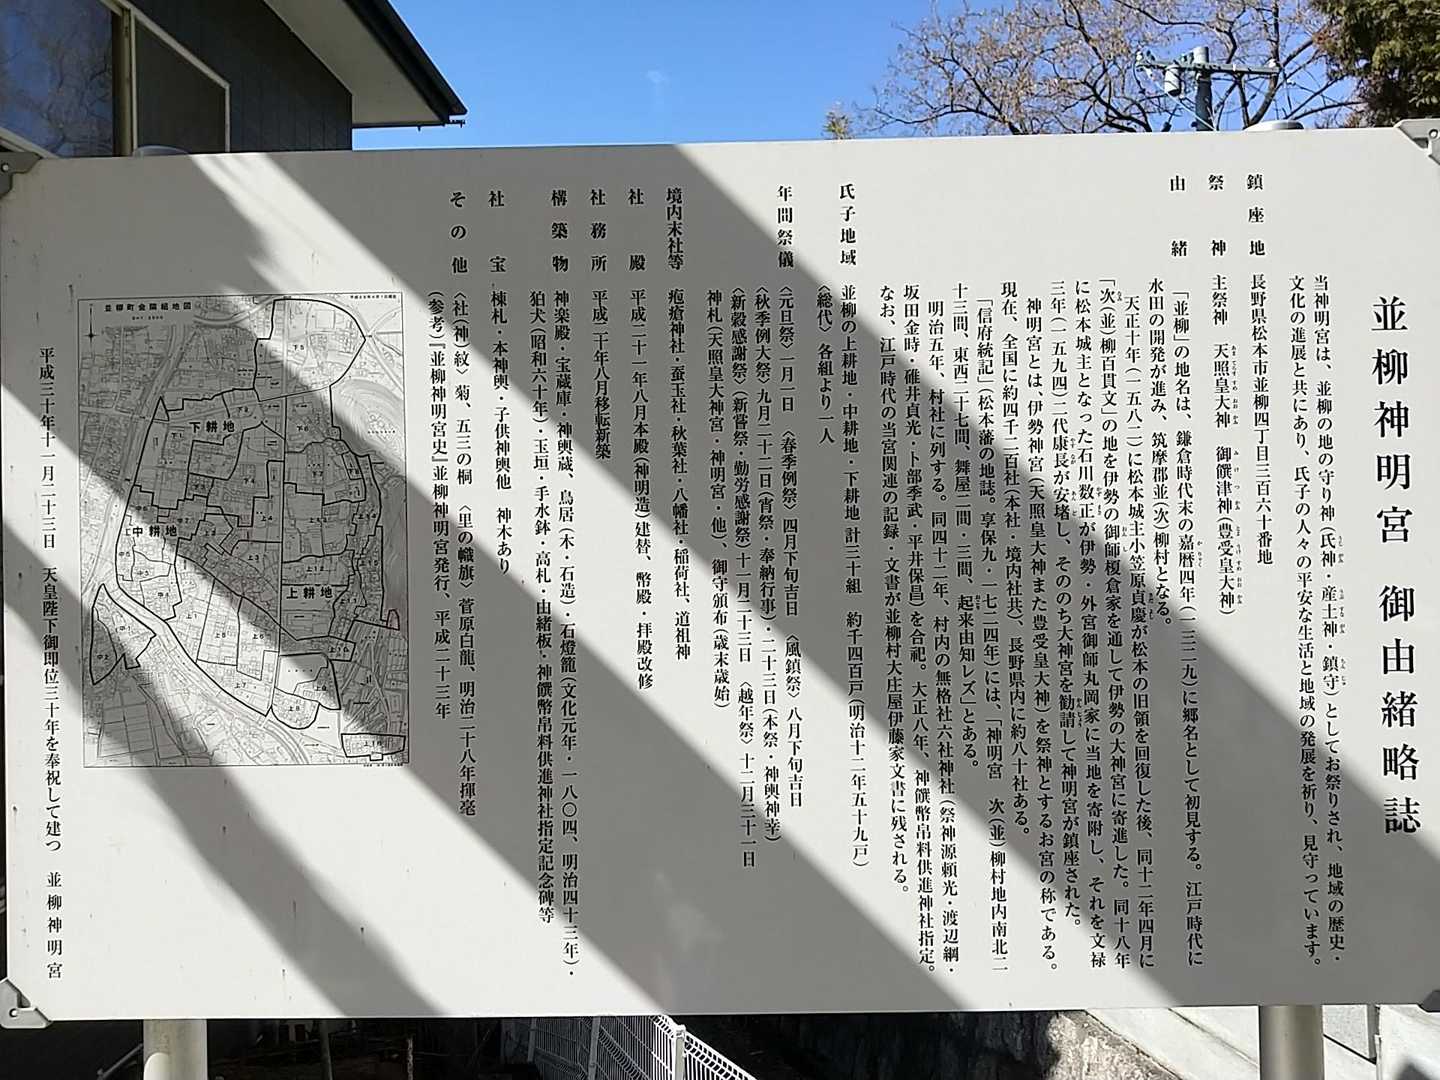 並柳神明宮 御由緒略誌
当神明宮は、並柳の地の守り神(氏神・産土神・鎮守)としてお祭りされ、地域の歴史・
文化の進展と共にあり、氏子の人々の平安な生活と地域の発展を祈り、見守っています。
鎮座地 長野県松本市並柳四丁目三百六十番地
祭神 主祭神 天照皇大神 御饌津神(豊受皇大神)
由緒 「並柳」の地名は、鎌倉時代末の嘉暦四年(一三二九)に郷名として初見する。江戸時代に
水田の開発が進み、筑摩郡並(次)柳村となる。
天正十年(一五八二)に松本城主小笠原貞慶が松本の旧領を回復した後、同十二年四月に
「次(並)柳百貫文」の地を伊勢の御師榎倉家を通して伊勢の大神宮に寄進した。同十八年
に松本城主となった石川数正が伊勢・外宮御師丸岡家に当地を寄附し、それを文禄
三年(一五九四)二代康長が安堵し、そののち大神宮を勧請して神明宮が鎮座された。
神明宮とは、伊勢神宮(天照皇大神また豊受皇大神)を祭神とするお宮の称である。
現在、全国に約四千二百社(本社・境内社共)、長野県内に約八十社ある。
「信府統記」松本藩の地誌。享保九・一七二四年)には、「神明宮 次(並)柳村地内南北二
十三間、東西二十七間、舞屋二間・三間、起来由知レズ」とある。
明治五年、村社に列する。同四十二年、村内の無格社六社神社(祭神源頼光・渡辺綱・
坂田金時・碓井貞光・卜部季武・平井保昌)を合祀。大正八年、神饌幣帛料供進神社指定。
なお、江戸時代の当宮関連の記録・文書が並柳村大庄屋伊藤家文書に残される。
氏子地域 並柳の上耕地・中耕地・下耕地 計三十組 約千四百戸(明治十二年五十九戸)
〈総代〉各組より一人
年間祭儀 〈元旦祭〉一月一日 〈春季例祭〉四月下旬吉日 〈風鎮祭〉八月下旬吉日
〈秋季例大祭〉九月二十二日(宵祭・奉納行事)・二十三日(本祭・神輿神幸)
〈新穀感謝祭〉(新嘗祭・勤労感謝祭)十一月二十三日 〈越年祭〉十二月三十一日
神札(天照皇大神宮・神明宮・他)、御守頒布(歳末歳始)
境内末社等 疱瘡神社・蚕玉社・秋葉社・八幡社・稲荷社、道祖神
社殿 平成二十一年八月本殿(神明造)建替、幣殿・拝殿改修
社務所 平成二十年八月移転新築
構築物 神楽殿・宝蔵庫・神輿蔵、鳥居(木・石造)・石燈籠(文化元年・一八〇四、明治四十三年)・
狛犬(昭和六十年)・玉垣・手水鉢・高札・由緒板・神饌幣帛料供進神社指定記念碑等
社宝 棟札・本神輿・子供神輿他 神木あり
その他 〈社(神)紋〉菊、五三の桐 〈里の幟旗〉菅原白龍、明治二十八年揮毫
(参考)『並柳神明宮史』並柳神明宮発行、平成二十三年
並柳町会隣組地図
下耕地
中耕地
上耕地
平成三十年十一月二十三日 天皇陛下御即位三十年を奉祝して建つ 並柳神明宮